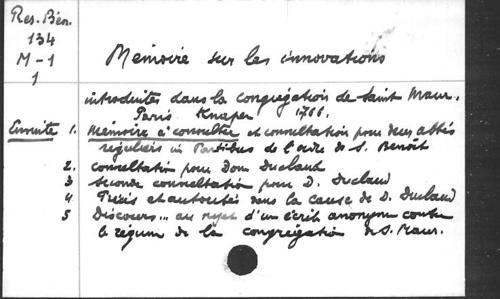 Res. Bén.
134
M-1
1
Mémoire sur les innovations
introduites dans la congrégation de Saint Maur.
Paris. Knapen 1766.
Ensuite 1. Mémoire à consulter et consultation pour deux abbés
réguliers in Partibus de l'ordre de S. Benoît
2. consultation pour Dom Duclaud
3 seconde consultation pour D. Duclaud
4 Précis et autorités dans la cause de D. Duclaud
5 Discours... au sujet d'un écrit anonyme contre
le régime de la congrégation de S. Maur.